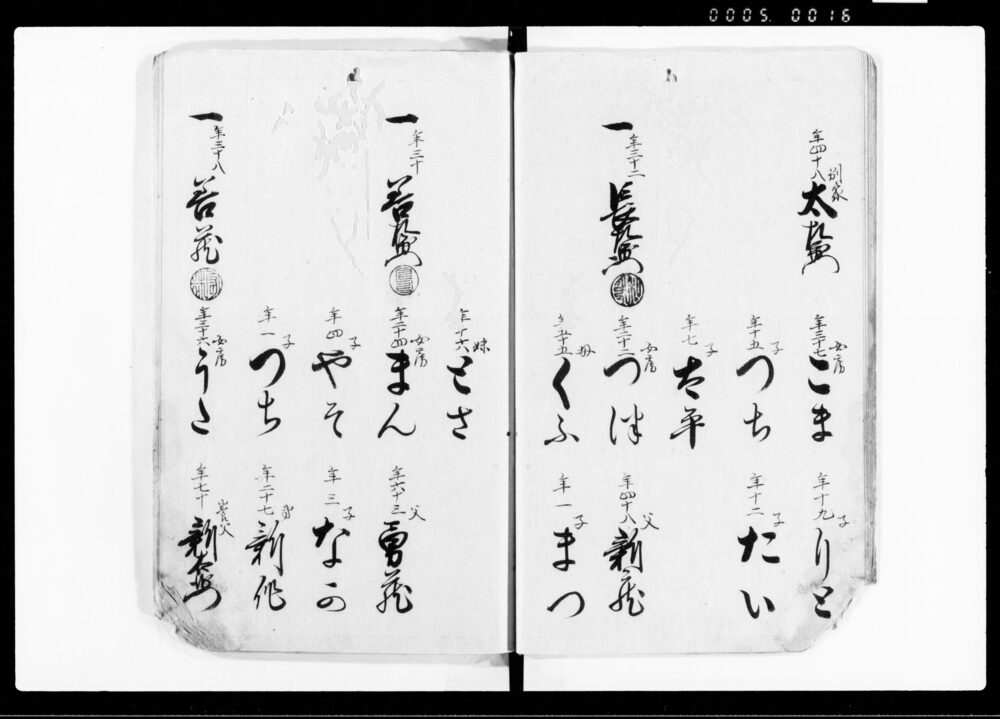 0005 0016
年四十八 別家 太
年三十七 女房 こま
年十九 子 りと
年十五 子 つち
年十二 子 たい
年七 子 平
一 年三十二 長
年二十二 女房 つ
年四十八 父 新蔵
年五十五 母 くふ
年一 子 まつ
年十六 妹 とさ
一 年三十 善
年二十四 女房 まん
年六十三 父 勇蔵
年四 子 やそ
年三 子 なか
年一 子 つち
年二十七 弟 新作
一 年三十八 善蔵
年三十六 女房 うた
年七十 養父 新